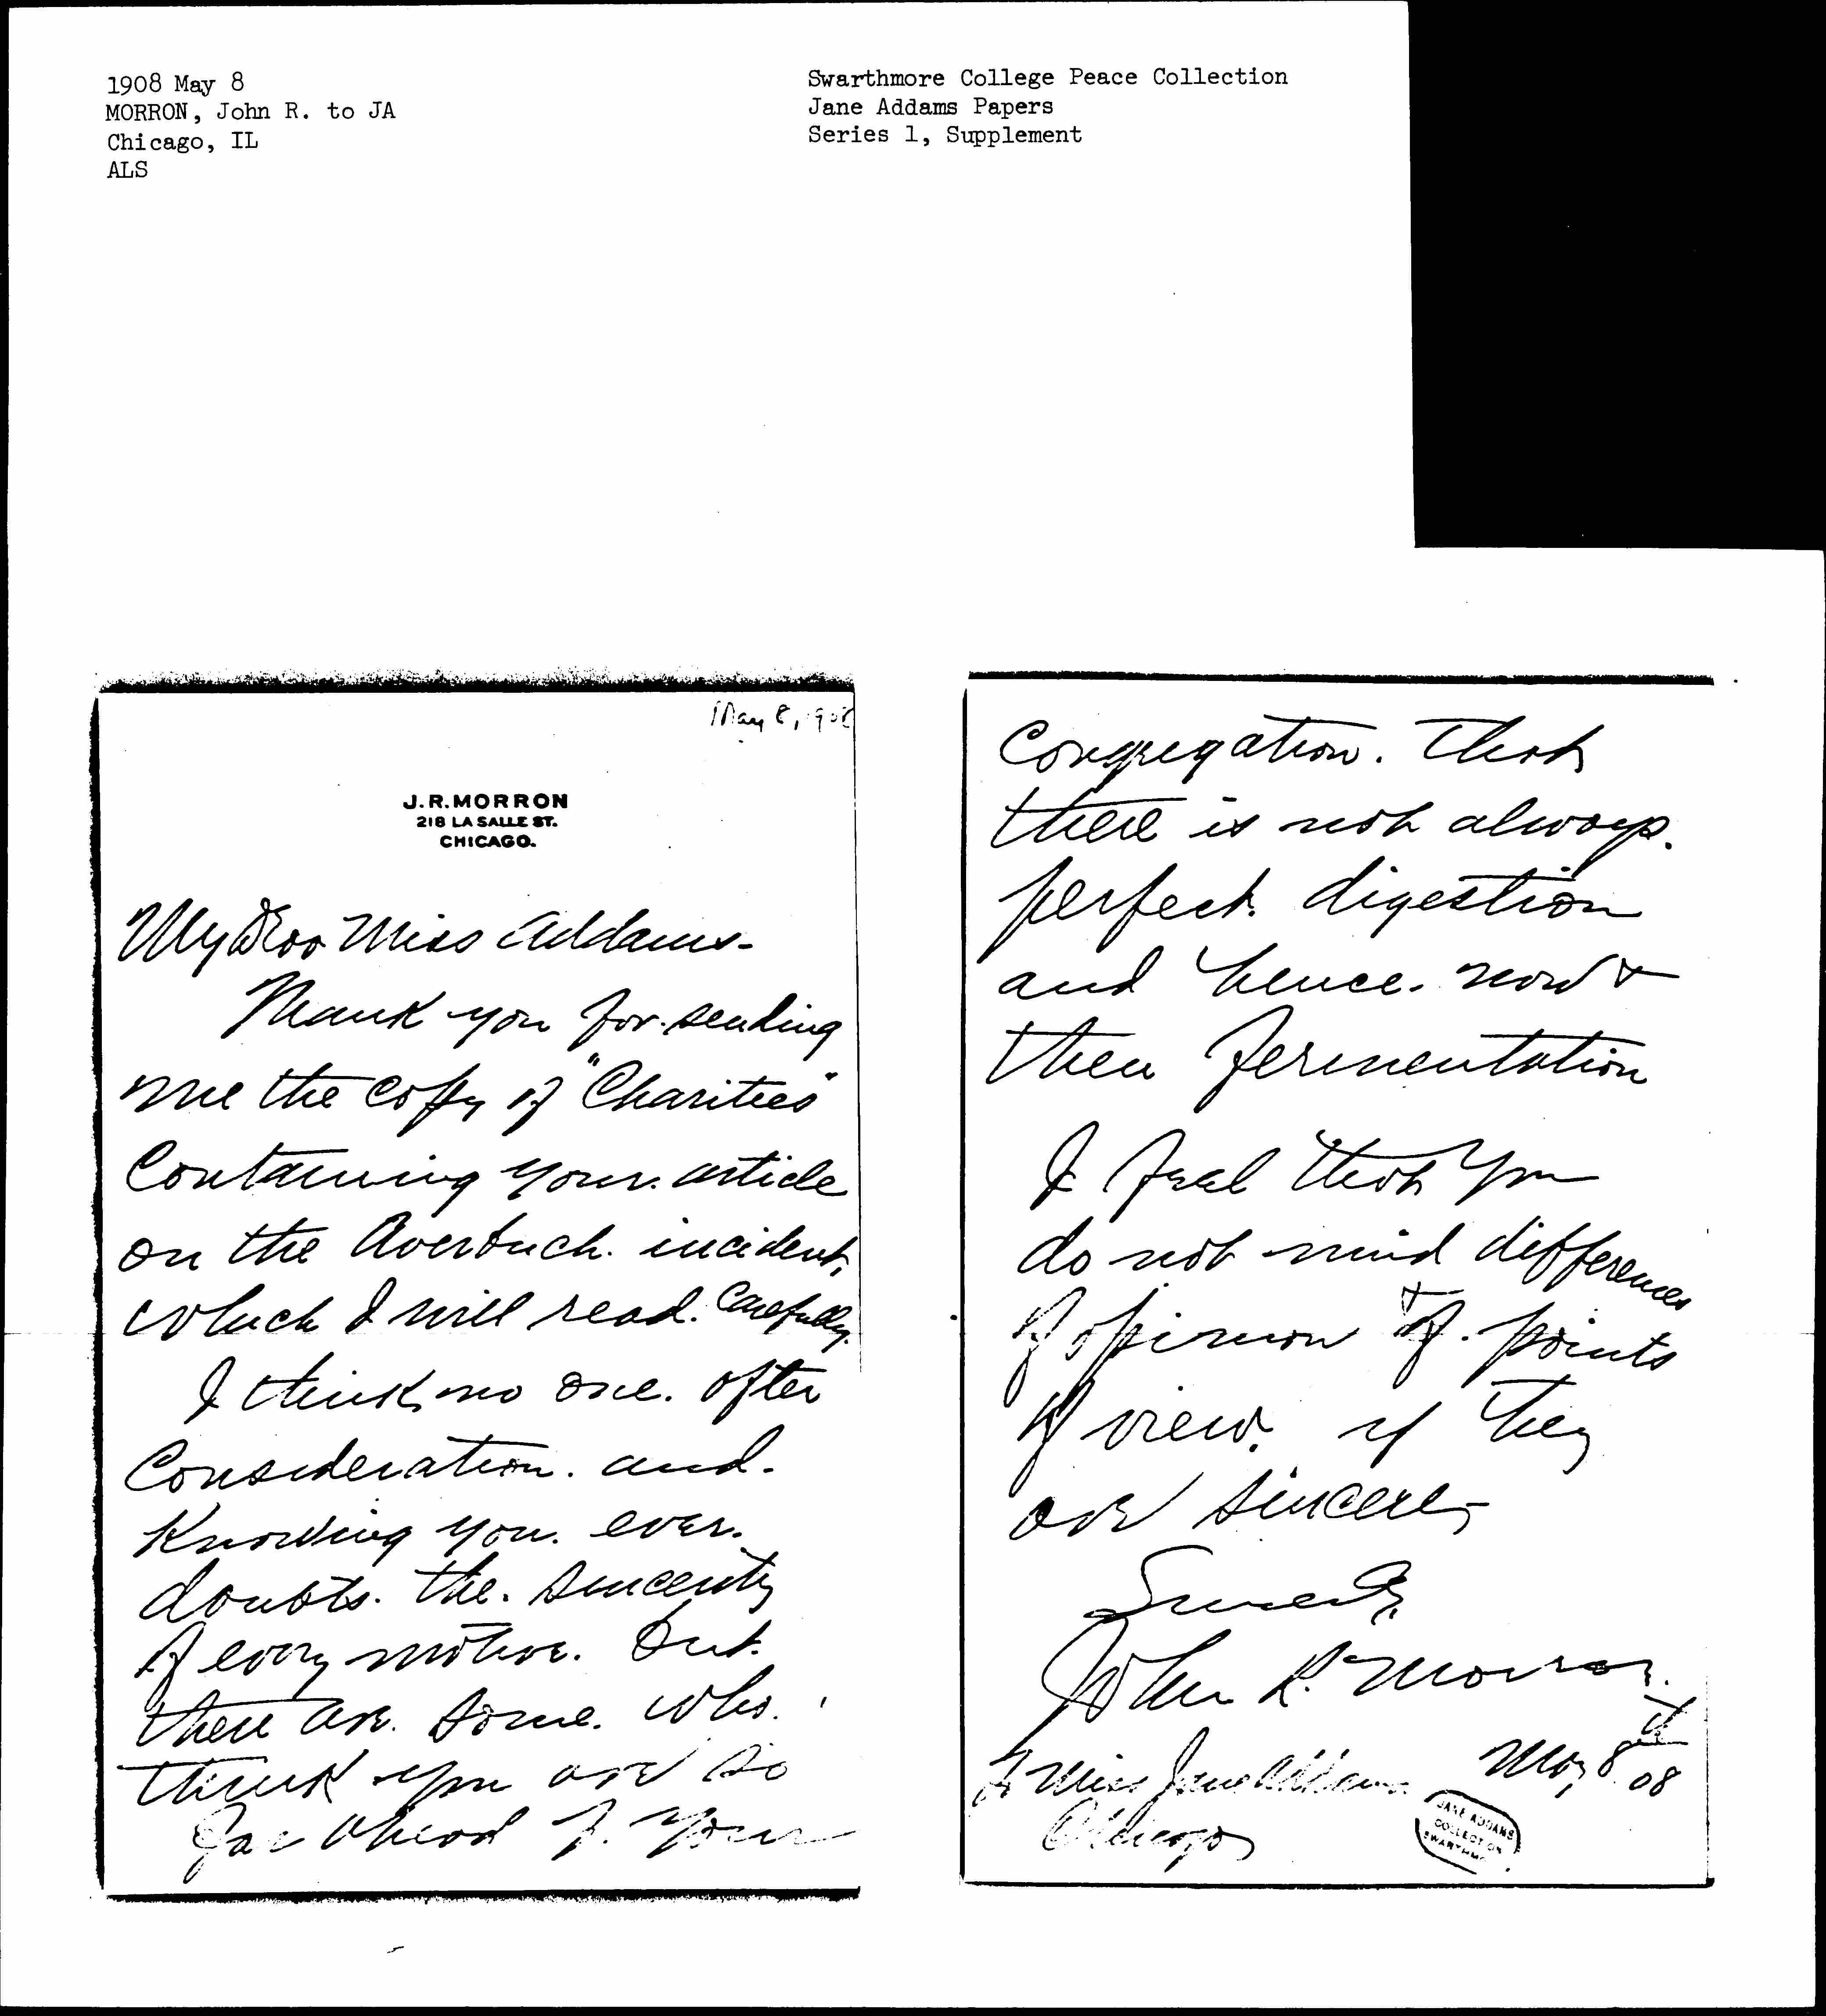 1908 May 8
MORRON, John R. to JA
Chicago, IL
ALS
Swarthmore College Peace Collection
Jane Addams Papers
Series 1, Supplement
May 8, 1908
J. R. MORRON
218 LA SALLE ST.
CHICAGO.
My Dear Miss Addams-
Thank you for sending
me the copy of "Charities"
Containing your article
on the Averbuch incident,
which I will read carefully.
I think no one. after
Consideration. and.
Knowing you. ever.
doubts. the. sincerity
of every motive. But.
there are. some. who.
think you are so
far ahead of. your
Congregation. That
there is not always.
perfect. digestion
and hence. now &
then fermentation
I feel that you
do not mind differences
of opinion & of. points
of view. if they
are sincere-
Sincerely,
John R. Morron.
To Miss Jane Addams. May 8th 08
Chicago
JANE ADDAMS
COLLECTION
SWARTHMORE